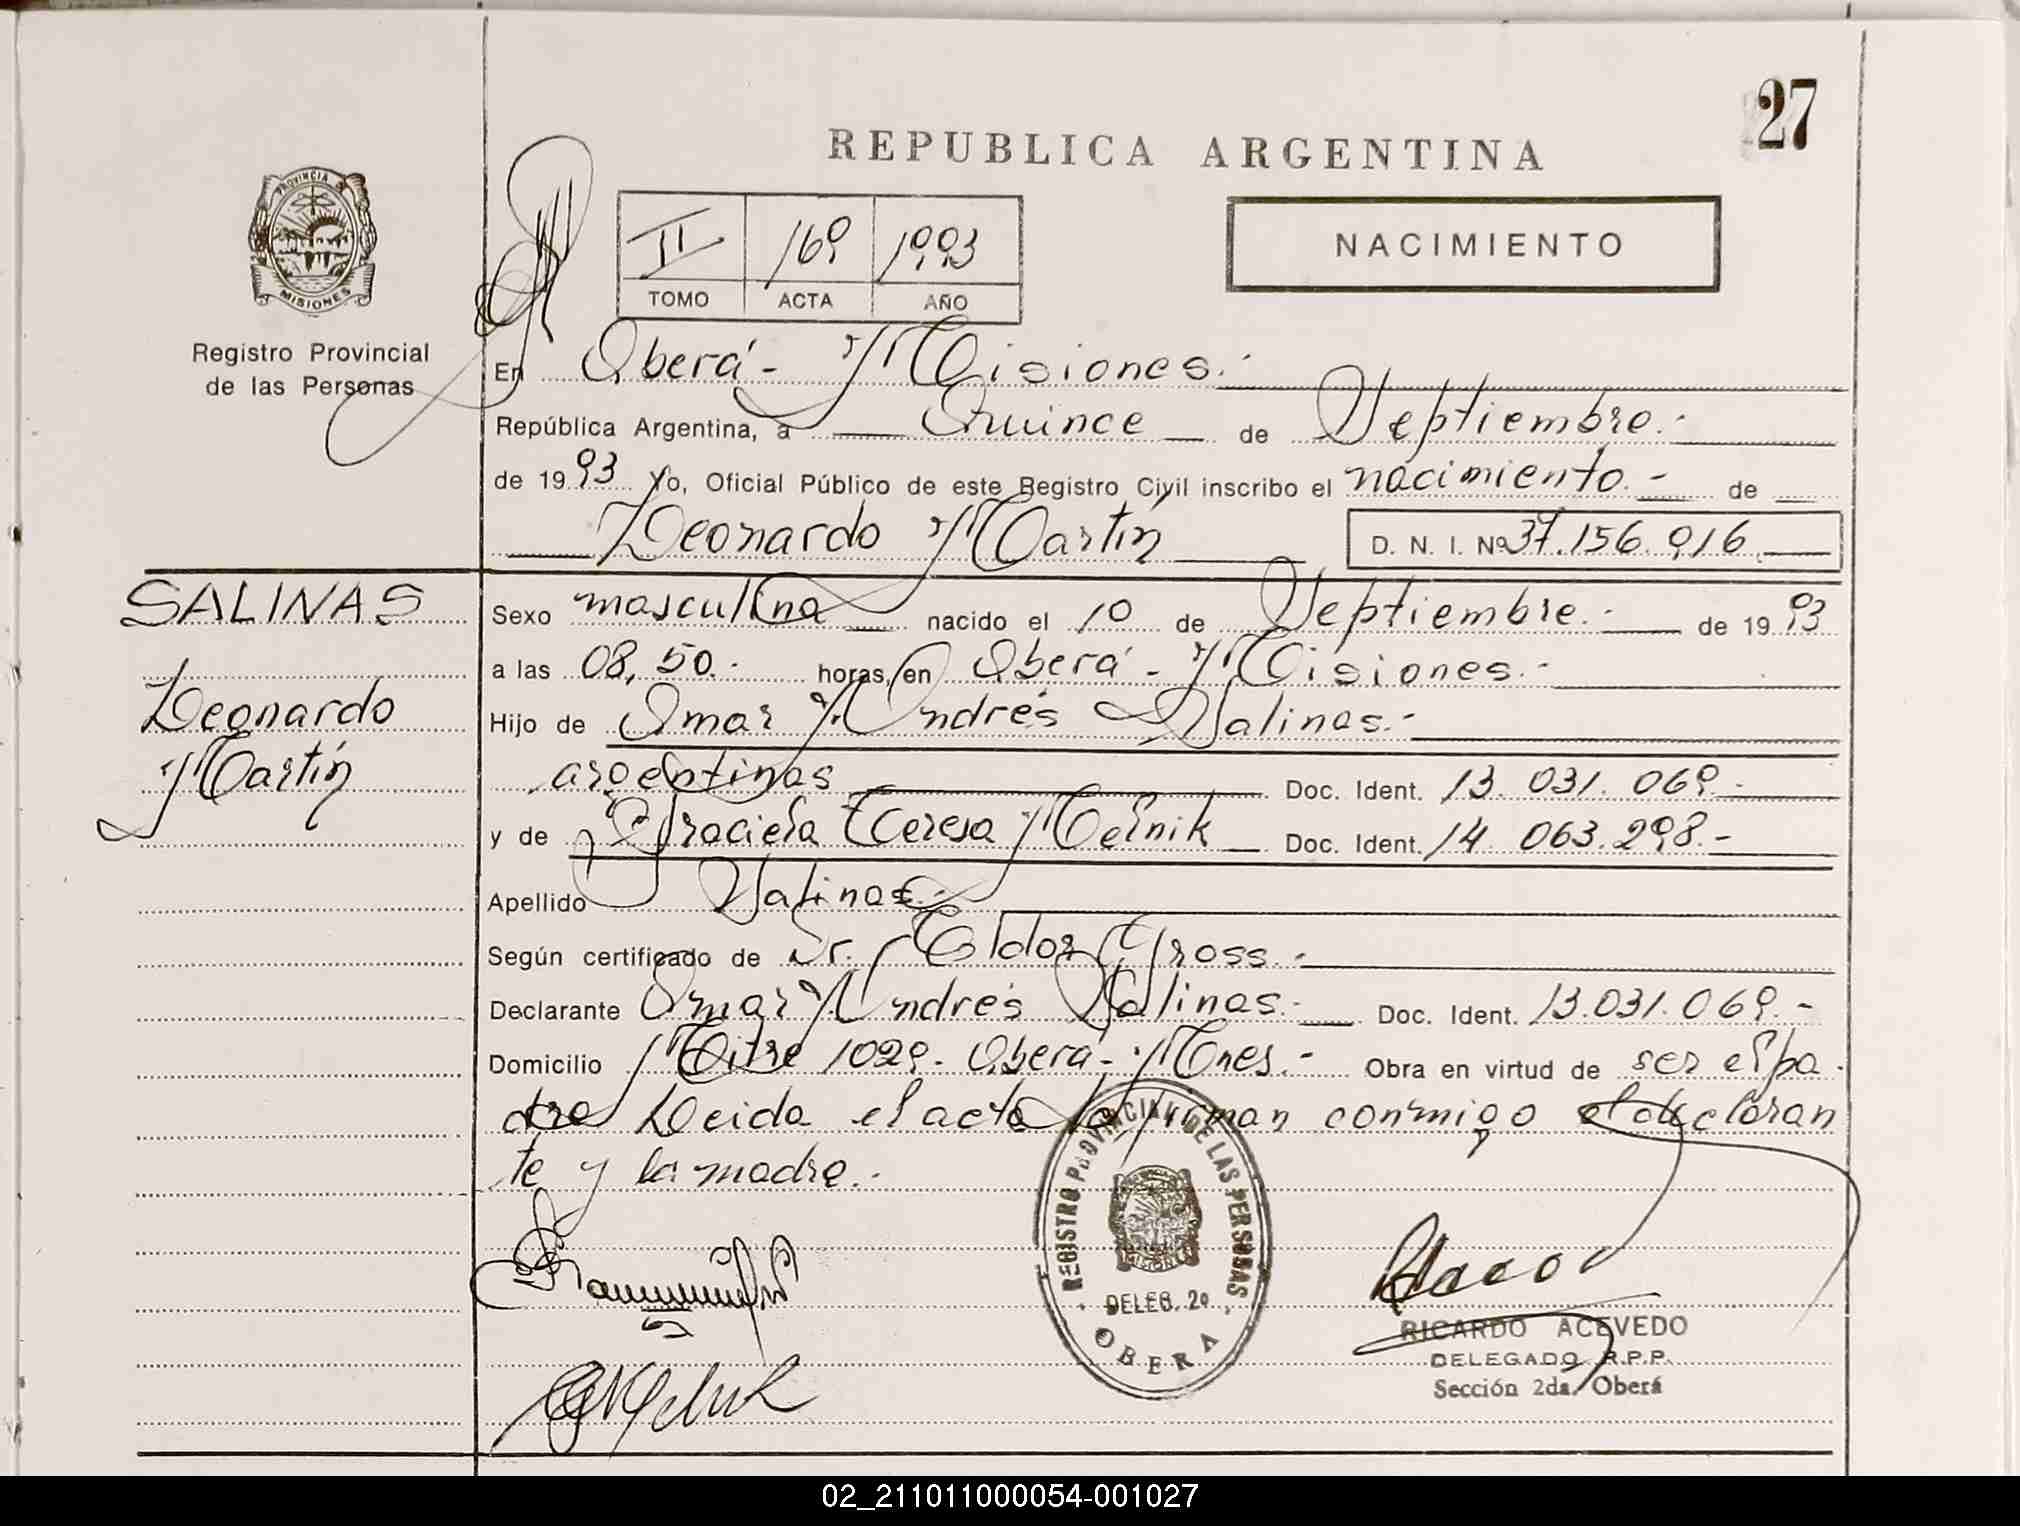 27
REPUBLICA ARGENTINA
PROVINCIA DE
MISIONES
Registro Provincial
de las Personas
II 169 1993
TOMO ACTA AÑO
NACIMIENTO
En Oberá - Misiones.-
República Argentina, a Quince de Septiembre.-
de 1993 Yo, Oficial Público de este Registro Civil inscribo el nacimiento.- de
Leonardo Martín D. N. I. Nº 37.156.916
SALINAS
Leonardo
Martín
Sexo masculino nacido el 10 de Septiembre.- de 1993
a las 08,50.- horas, en Oberá - Misiones.-
Hijo de Omar Andrés Salinas.-
argentinos Doc. Ident. 13.031.069.-
y de Graciela Teresa Melnik Doc. Ident. 14.063.298.-
Apellido Salinas.-
Según certificado de Dr. Eldor Gross.-
Declarante Omar Andrés Salinas.- Doc. Ident. 13.031.069.-
Domicilio Mitre 1029- Oberá- Mnes.- Obra en virtud de ser el pa-
dre Leida el acta la firman conmigo el declaran
te y la madre.-
REGISTRO PROVINCIAL DE LAS PERSONAS
MISIONES
DELEG. 2a
OBERA
RICARDO ACEVEDO
DELEGADO R.P.P.
Sección 2da. Oberá
02_211011000054-001027